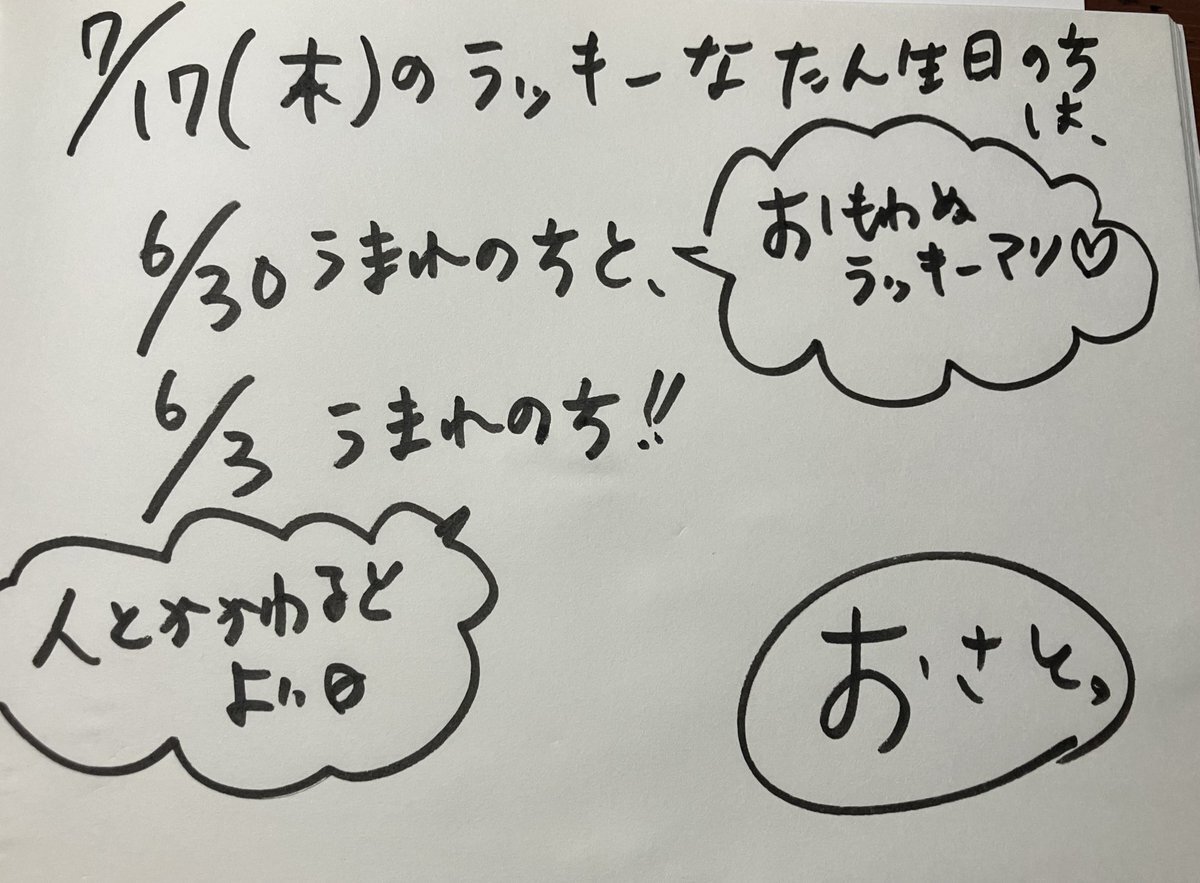 7/17(木)のラッキーなたん生日のち
は、
6/30うまれのちと、
おもわぬ
ラッキーアリ♡
6/3 うまれのち!!
人とかかわると
よい日
おさと。